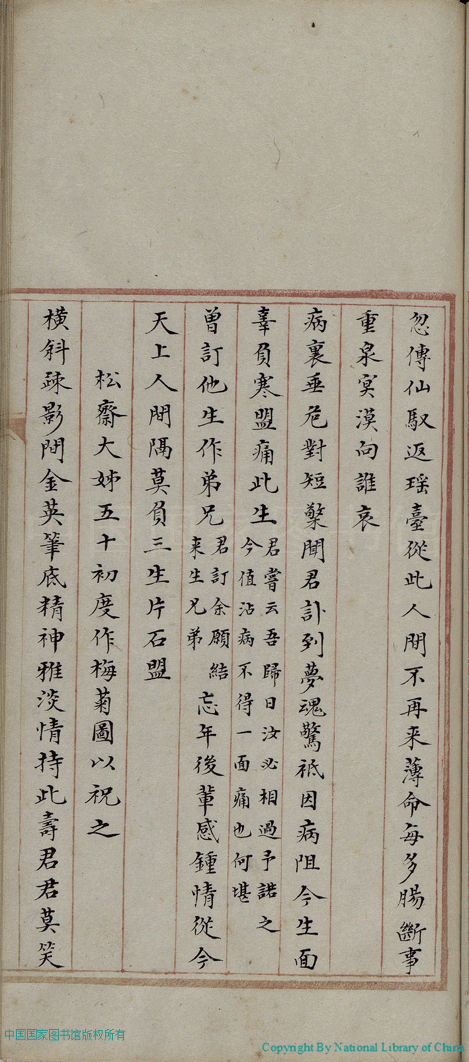 忽傳仙馭返瑤臺從此人間不再来薄命每多腸斷事
重泉冥漠向誰哀
病裏垂危對短檠聞君訃到夢魂驚祗因病阻今生面
辜負寒盟痛此生君嘗云吾歸日汝必相過予諾之今值沾病不得一面痛也何堪
曽訂他生作弟兄君訂余願結来生兄弟忘年後輩感鍾情從今
天上人間隔莫負三生片石盟
松齋大姊五十初度作梅菊圖以祝之
橫斜疎影間金英筆底精神雅淡情持此壽君君莫笑
中国国家图书馆版权所有
Copyright By National Library of China